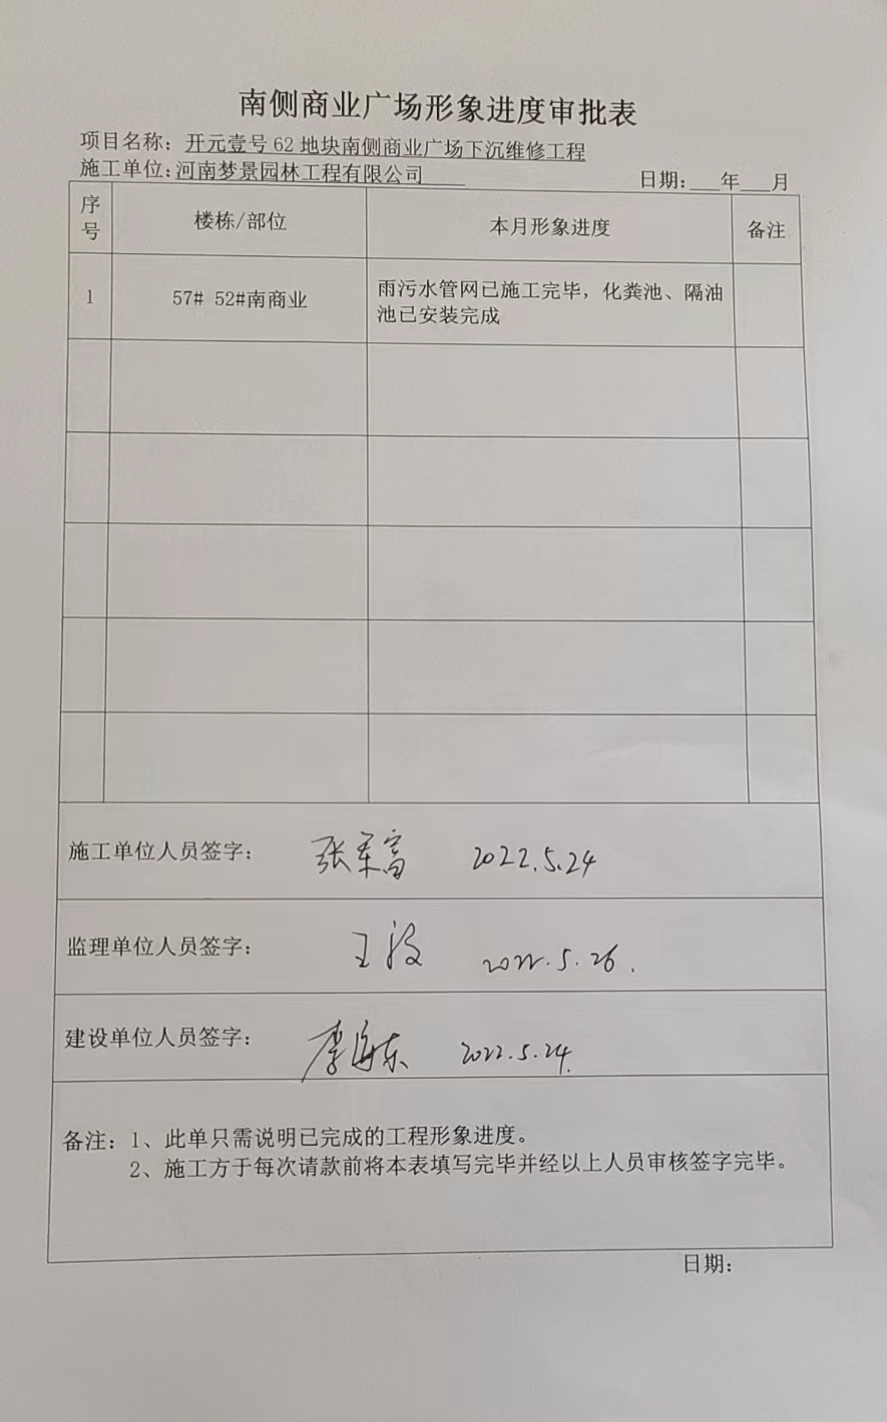 南侧商业广场形象进度审批表
项目名称：开元壹号 62 地块南侧商业广场下沉维修工程
施工单位：河南梦景园林工程有限公司
日期：___年___月
序号 楼栋/部位 本月形象进度 备注
1 57# 52#南商业 雨污水管网已施工完毕，化粪池、隔油
池已安装完成
施工单位人员签字： 张军富 2022.5.24
监理单位人员签字： 王 2022.5.26.
建设单位人员签字： 李海东 2022.5.24.
备注：1、此单只需说明已完成的工程形象进度。
2、施工方于每次请款前将本表填写完毕并经以上人员审核签字完毕。
日期：